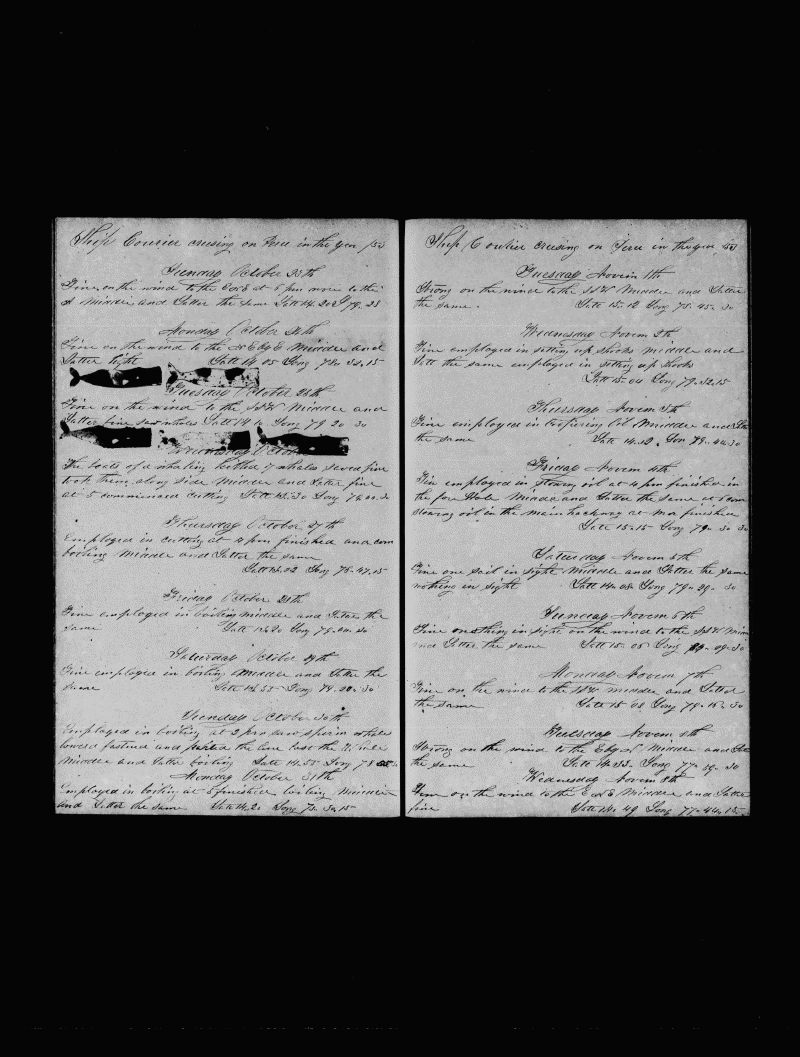 Ship Courier cruising on Peru in the year /53
Sunday October 23th
Fine on the wind to the at 6 pm wore to the
S Middle and Latter the same Latt 14.20 79.23
Monday October 24th
Fine on the wind to the E by E Middle and
Latter light Latt 14 05 Long 78. 32.15
Tuesday October 25th
Fine on the wind to the SSW Middle and
Latter fine saw whales Latt 14 Long 79 20 30
Wednesday October
The boats of a whaling 7 whales saved five
took them along side Middle and Latter fine
at 5 commenced cutting Latt Long
Thursday October 27th
Employed in cutting at 4 pm finished and com
boiling Middle and Latter the same
Latt Long 78-47.15
Friday October 28th
Fine employed in boiling Middle and Latter the
same Latt Long 78 30
Saturday October 29th
Fine employed in boiling Middle and Latter the
same Latt 14.55 Long 30
Sunday October 30th
Employed in boiling at 2 pm saw sperm whales
lowered fastened and parted the line lost the whale
Middle and Latter boiling Latt 14.55 Long 78
Monday October 31th
Employed in boiling at 5 finished boiling Middle
and Latter the same Latt 14.20 Long 78. 30.15
Ship Courier cruising on Peru in the year /53
Tuesday Novem 1th
Strong on the wind to the SSW Middle and Latter
the same. Latt 15-12 Long 78-45-30
Wednesday Novem 2th
Fine employed in setting up shooks Middle and
Latt the same employed in setting up shooks
Latt 15-04 Long 79-32.15
Thursday Novem 3th
Fine employed in Coopering Oil Middle and Lat
the same Latt 14-12. Lon 79-42.30
Friday Novem 4th
Fin employed in stowing oil at 4 pm finished in
the fore Hole Middle and Latter the same at 6 com
stowing oil in the main hachway at finished
Latt 15-15 Long 79- 30 30
Saturday Novem 5th
Fine one sail in sight Middle and Latter the same
nothing in sight Latt 14-08 Long 79-29- 30
Sunday Novem 6th
Fine nothing in sight on the wind to the SSW Midd
and Latter the same Latt 15-05 Long 09-30
Monday Novem 7th
Fine on the wind to the Middle and Latter
the same Latt 15 08 Long 79-15-30
Tuesday Novem 8th
Strong on the wind to the E by N Middle and Lat
the same Latt 14.53. Long 77- 19- 30
Wednesday Novem
Fine on the wind to the Middle and Latter
fine Latt 14. 49 Long 77-44.15